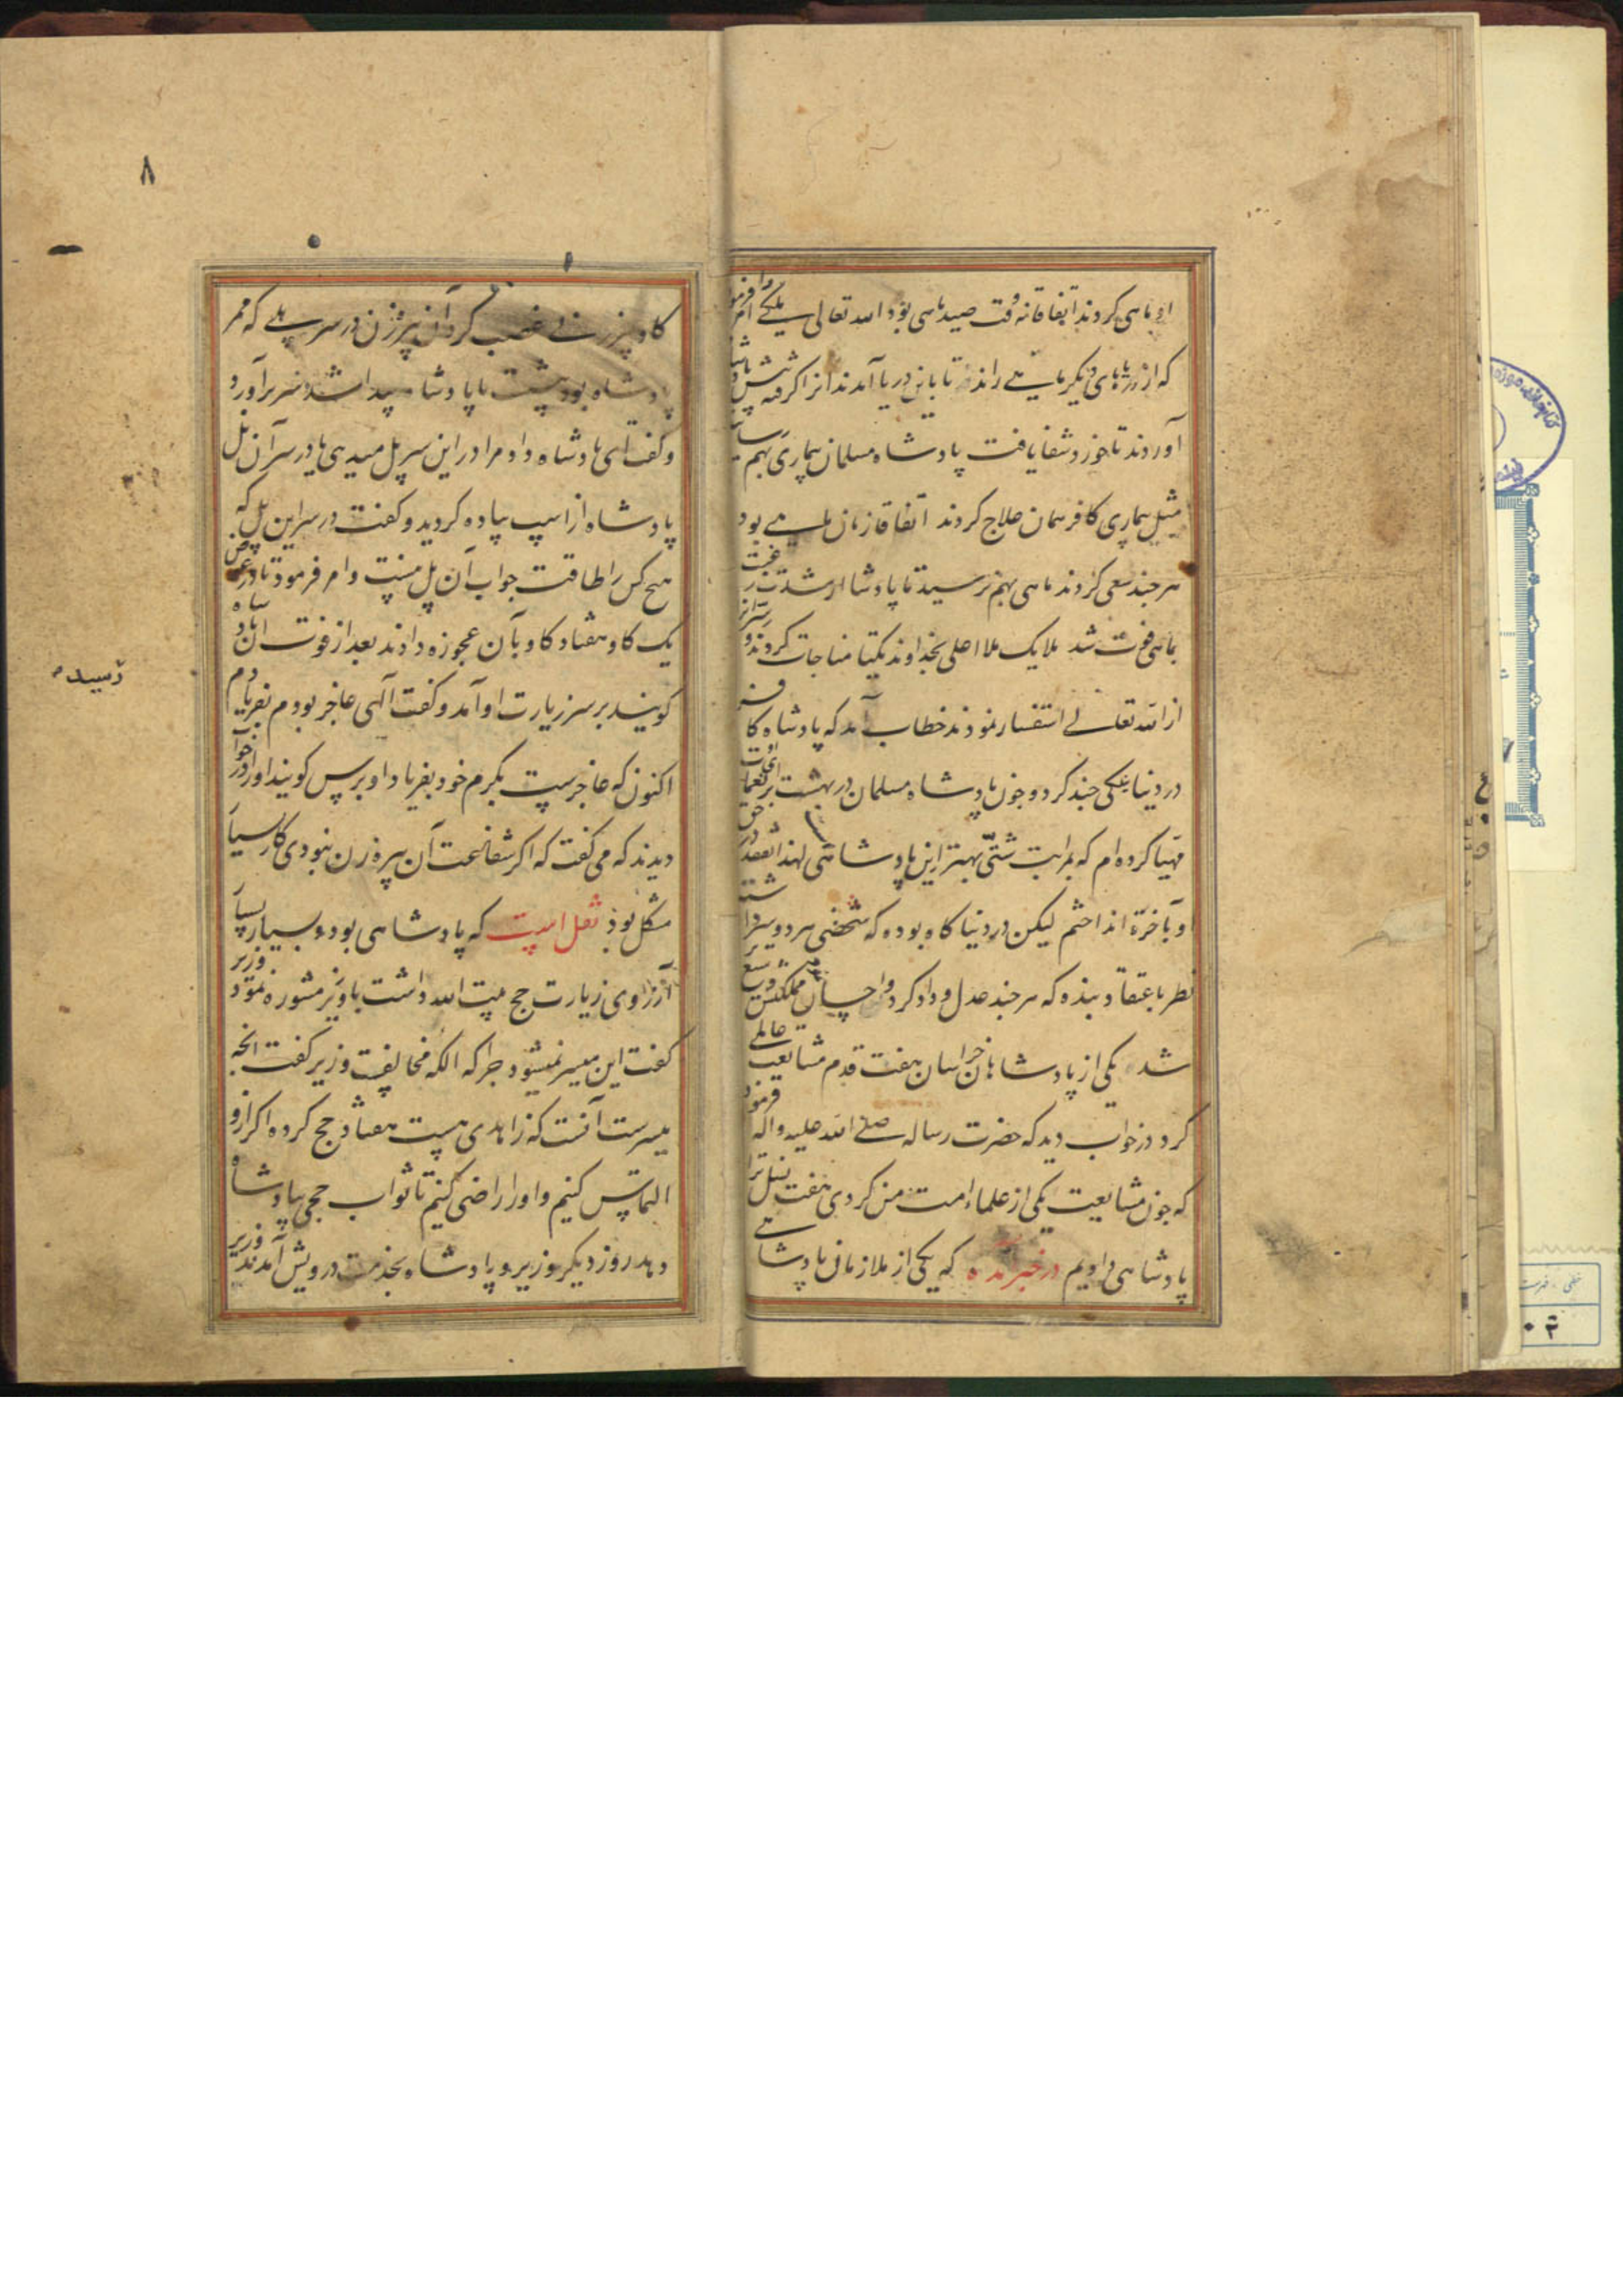 او بماهی کردند اتفاقا نه وقت صید ماهی بود الله تعالی ملکی را امر فرمود
که از دریاهای دیگر ماهی رانده تا باین دریا آمدند آنرا گرفته پیش پادشاه
آوردند تا خورد شفا یافت پادشاه مسلمان بیماری بهم رسانید
مثل بیماری کافر همان علاج کردند اتفاقا زمان ماهی بود
هر چند سعی کردند ماهی بهم نرسید تا پادشاه از شدت رغبت
بماهی فوت شد ملایک ملاء اعلی بخداوند یکتا مناجات کردند و سر آنرا
از الله تعالی استفسار نمودند خطاب آمد که پادشاه کافر
در دنیا نیکی چند کرد و چون پادشاه مسلمان در بهشت نعمات
مهیا کرده ام که بمراتب شتّی بهتر از این پادشاهی لهذا قصد
او بآخرة انداختم لیکن در دنیا گاه بوده که شخصی هر دو سرا داشته
نظر باعتقاد بنده که هر چند عدل و داد کرد و احسان مملکتش وسیع تر
شد یکی از پادشاهان خراسان هفت قدم مشایعت عالمی
کرد در خواب دید که حضرت رساله صلی الله علیه و اله فرمود
که چون مشایعت یکی از علماء امت من کردی هفت نسل ترا
پادشاهی دادیم در خبر آمده که یکی از ملازمان پادشاهی
۸
گاو پیرزنی غصب کرد آن پیرزن در سر پلی که ممر
پادشاه بود نشست تا پادشاه پیدا شد سر برآورد
و گفت ای پادشاه داد مرا در این سر پل میدهی یا در سر آن پل
پادشاه از اسب پیاده گردید و گفت در سر این پل که
هیچ کس را طاقت جواب آن پل نیست و امر فرمود تا در عوض
یک گاو هفتاد گاو بآن عجوزه دادند بعد از فوت پادشاه
گویند بر سر زیارت او آمد و گفت الهی عاجز بودم بفریادم
اکنون که عاجزست بکرم خود بفریاد او برس گویند او را در خواب
دیدند که می گفت که اگر شفاعت آن پیره زن نبودی کار بسیار
مشکل بود نقل است که پادشاهی بوده و بسیار بسیار
آرزوی زیارت حج بیت الله داشت با وزیر مشوره نمود وزیر
گفت این میسر نمیشود چرا که الکه مخالفست وزیر گفت آنچه
میسرست آنست که زاهدی هست هفتاد حج کرده اگر ازو
التماس کنیم و او را راضی کنیم تا ثواب حجی بپادشاه
دهد روز دیگر وزیر و پادشاه بخدمت درویش آمدند وزیر